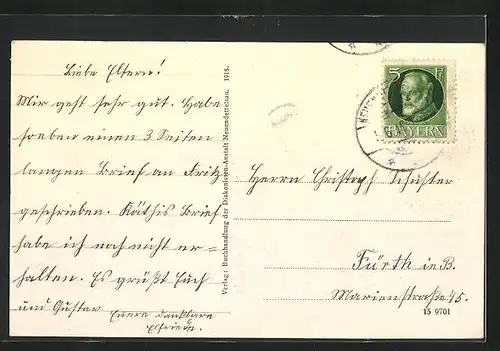 Liebe Eltern!
Mir geht sehr gut. Habe
soeben einen 3 Seiten
langen Brief an Fritz
geschrieben. Käthis Brief
habe ich noch nicht er=
halten. Es grüßt Euch
und Gustav Euere dankbare
Elfriede.
Verlag: Buchhandlung der Diakonissen-Anstalt Neuendettelsau. 1915.
5 F
BAYERN
Herrn Christoph Schuster
Fürth i. B.
Marienstraße 15.
15 9701